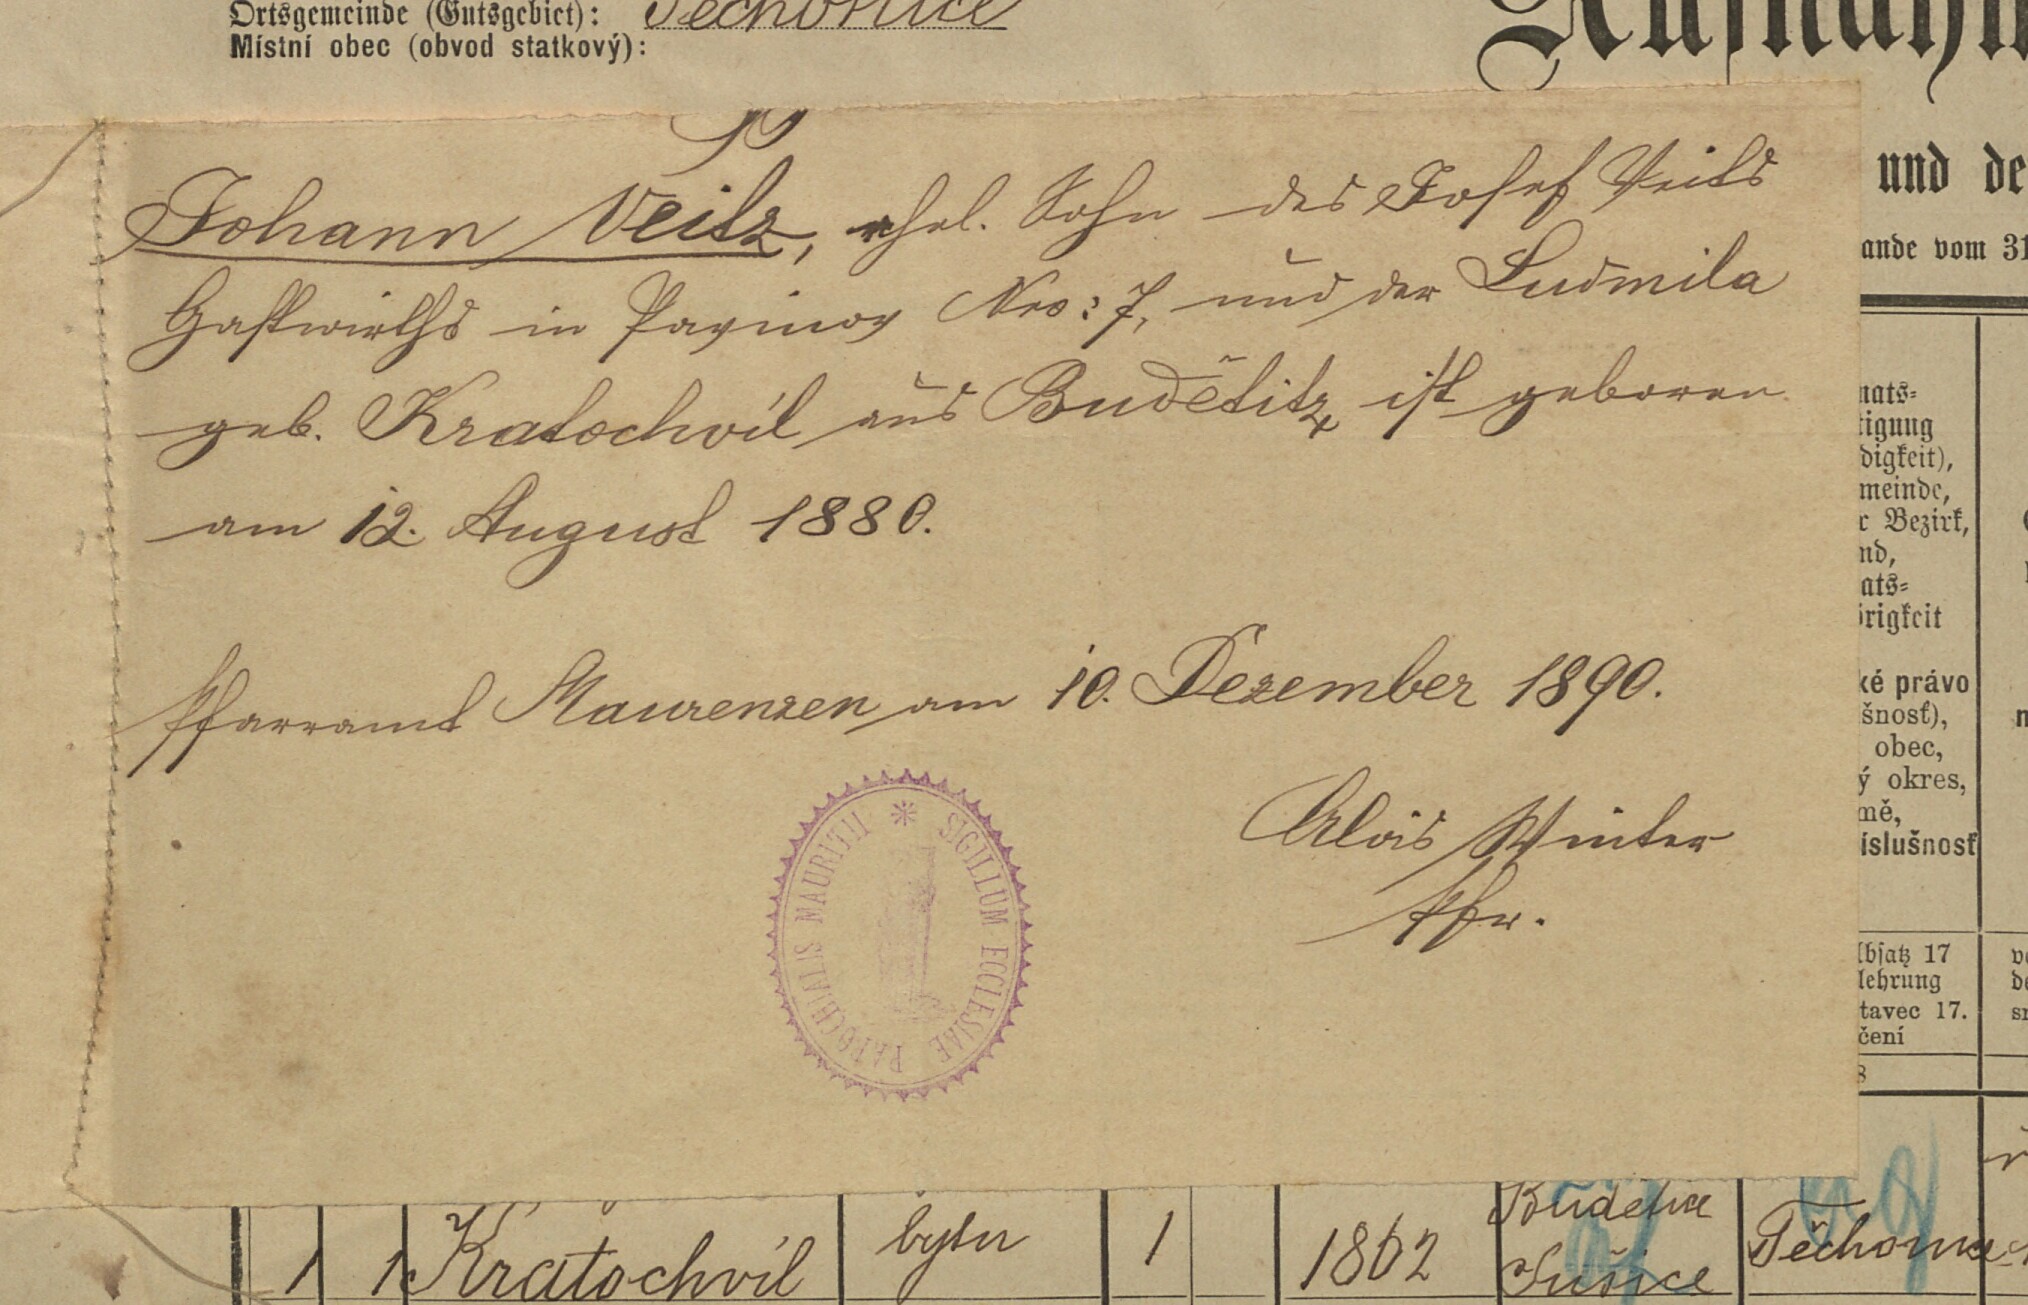 Ortsgemeinde (Gutsgebiet): Těchonice
Místní obec (obvod statkový):
und de
ande vom 31
Johann Veitz, ehel. Sohn des Josef Veits
Gastwirths in Pavinov Nro: 7, und der Ludmila
geb. Kratochvíl aus Budětitz ist geboren
am 12. August 1880.
Pfarramt Maurenzen am 10. Dezember 1890.
Alois Winter
Pfr.
SIGILLUM ECCLESIAE PAROCHIALIS MAURITII
nats=
tigung
digkeit),
meinde,
r Bezirk,
nd,
ats=
örigkeit
ké právo
šnosť),
obec,
ý okres,
mě,
íslušnosť
Absatz 17
lehrung
tavec 17.
čení
8
1 1 Kratochvíl bytu 1 1862 Budětice Těchonice
Sušice